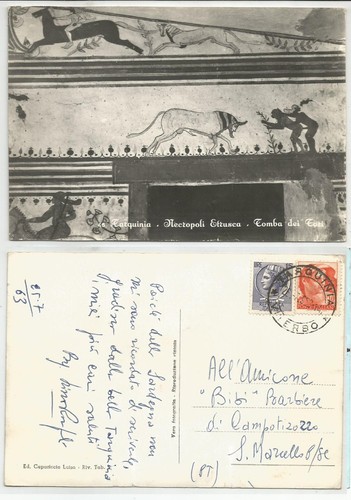 Tarquinia - Necropoli Etrusca - Tomba dei Tori
25-7
63
Poichè dalla Sardegna non
mi sono ricordato di scriverle
gradisca dalla bella Tarquinia
i miei più cari saluti
Vera fotografia - Riproduzione vietata
Ed. Capostrato Luisa - Riv. Tab.
TARQUINIA
VITERBO
All'Amicone
"Bibi" Barbiere
di Campotizzoro
S. Marcello P/se
(PT)